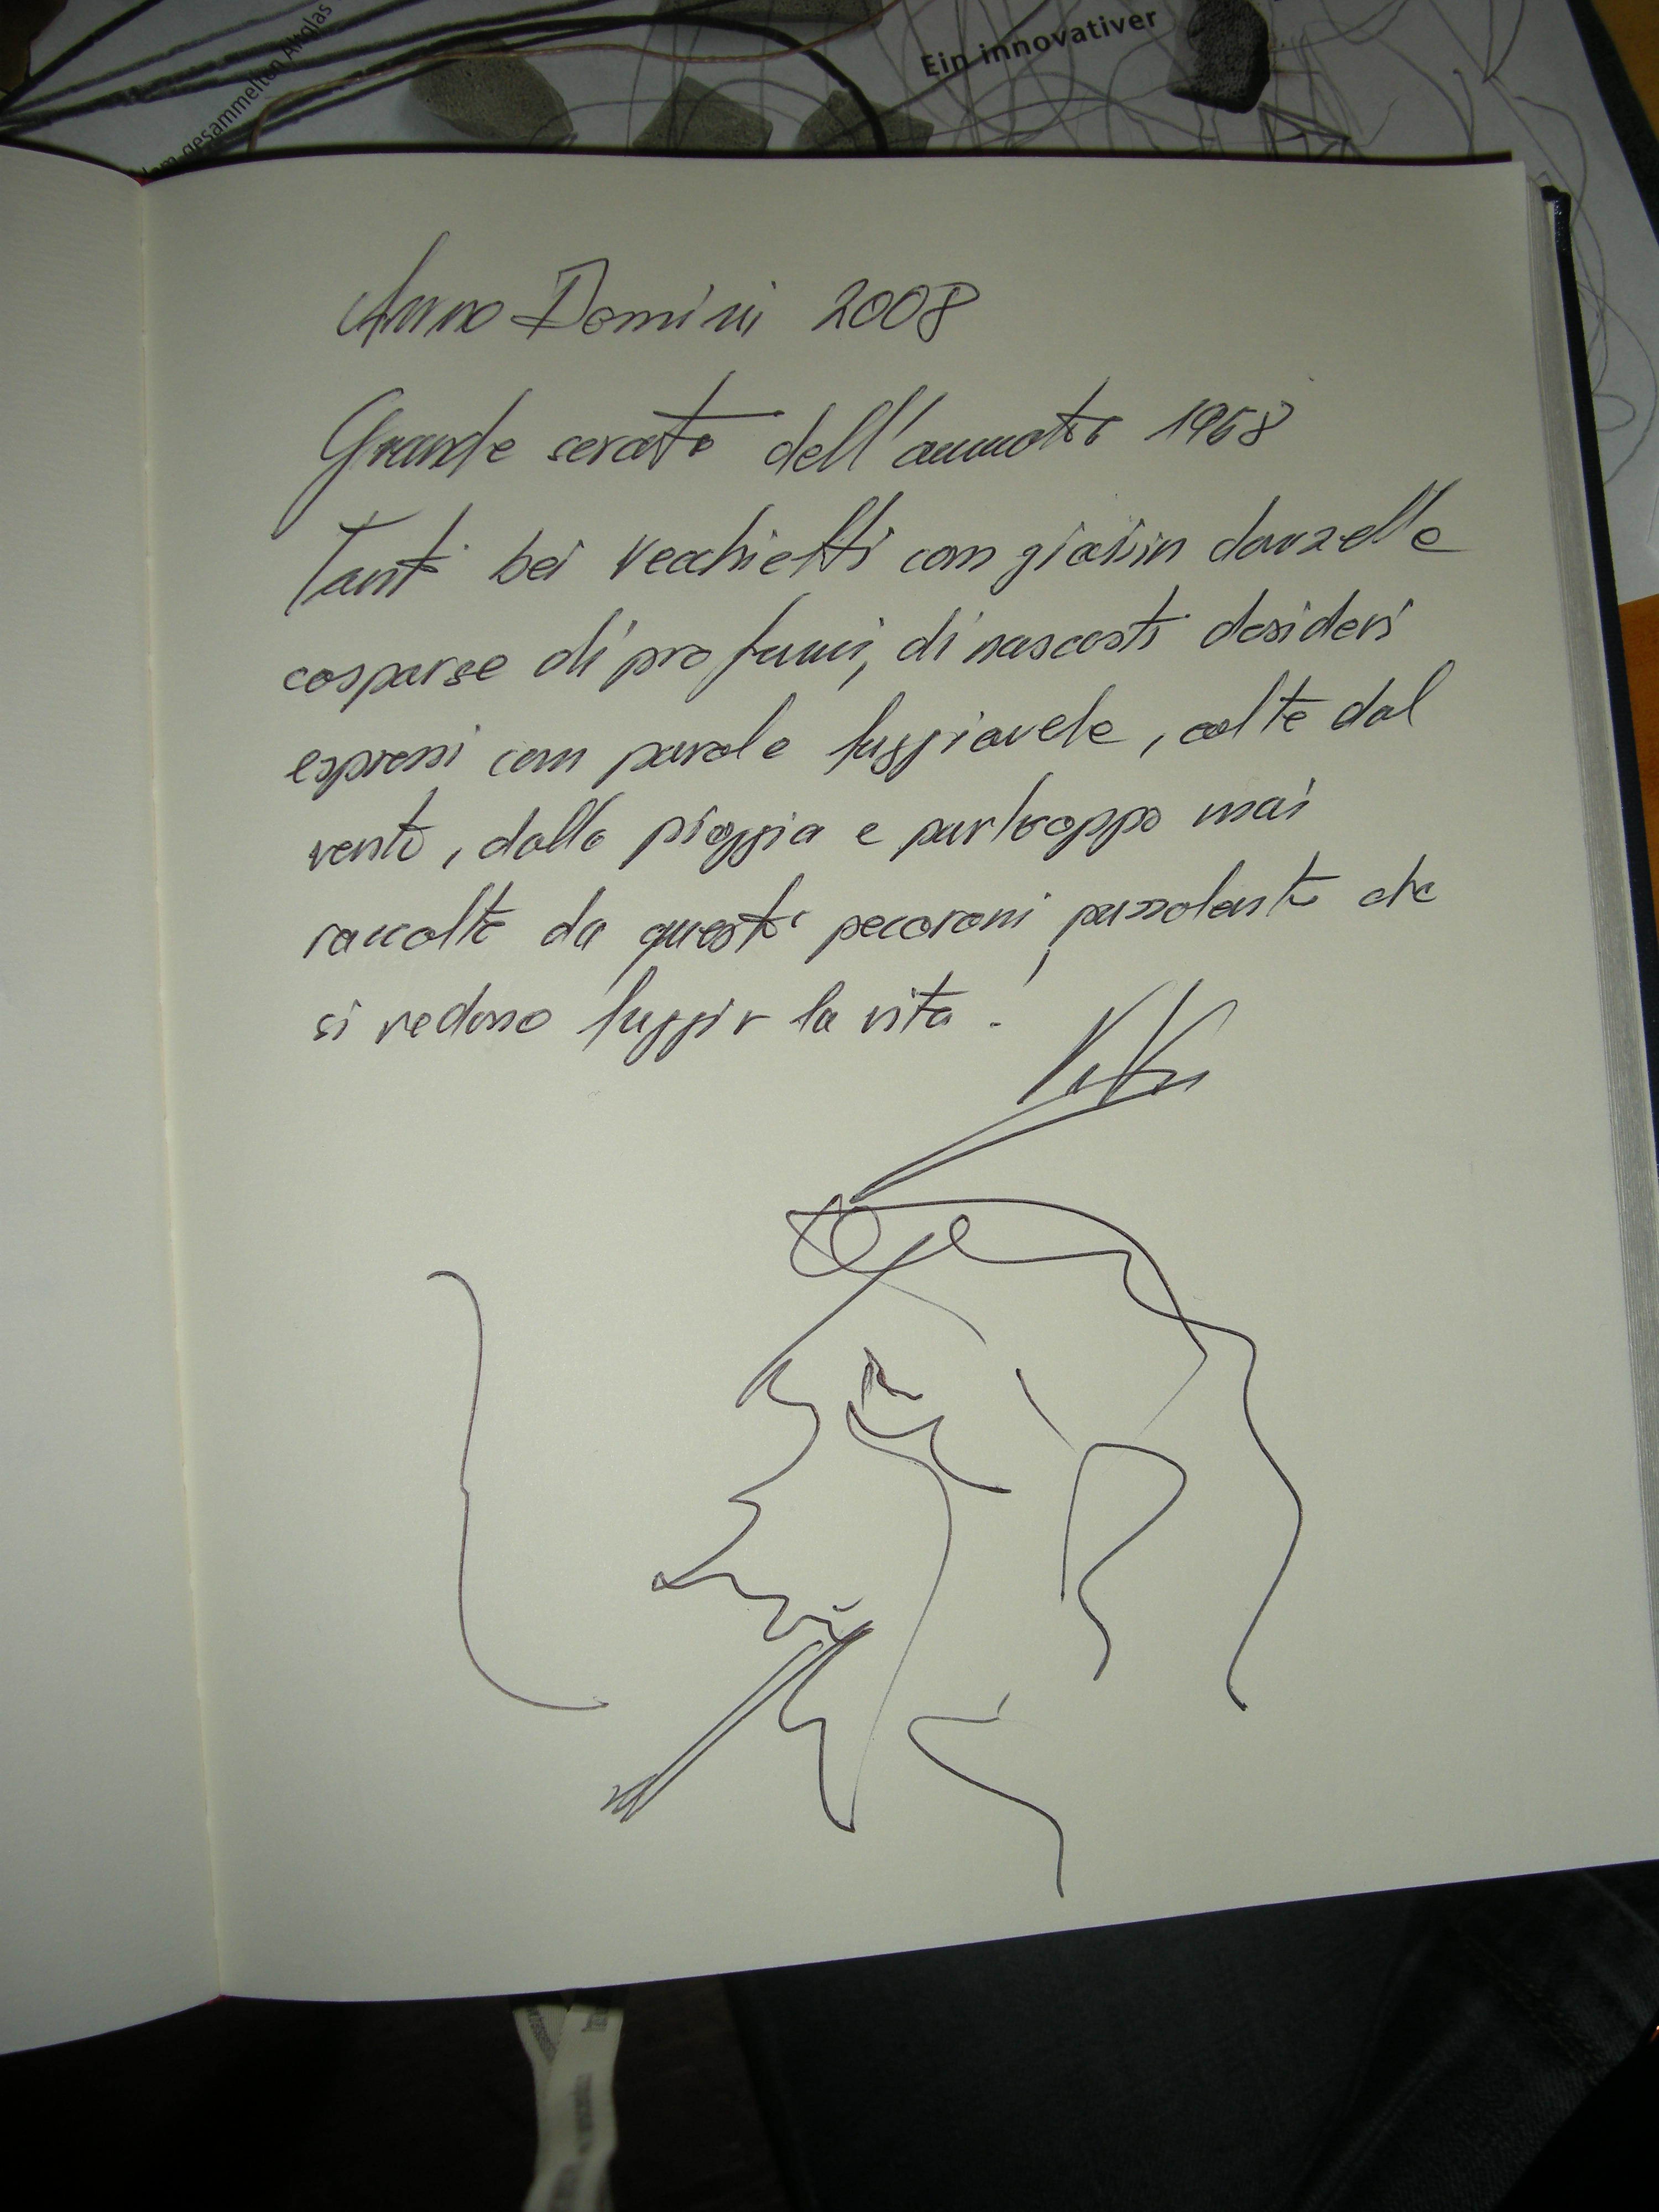 Ein innovativer
gesammelten Altglas
Anno Domini 2008
Grande serata dell'annata 1968
Tanti bei vecchietti con donzelle
cosparse di profumi, di nascosti desideri
espressi con parole fuggiavele, colte dal
vento, dalla pioggia e purtroppo mai
raccolte da questi pecoroni, puzzolenti che
si vedono fuggir la vita!